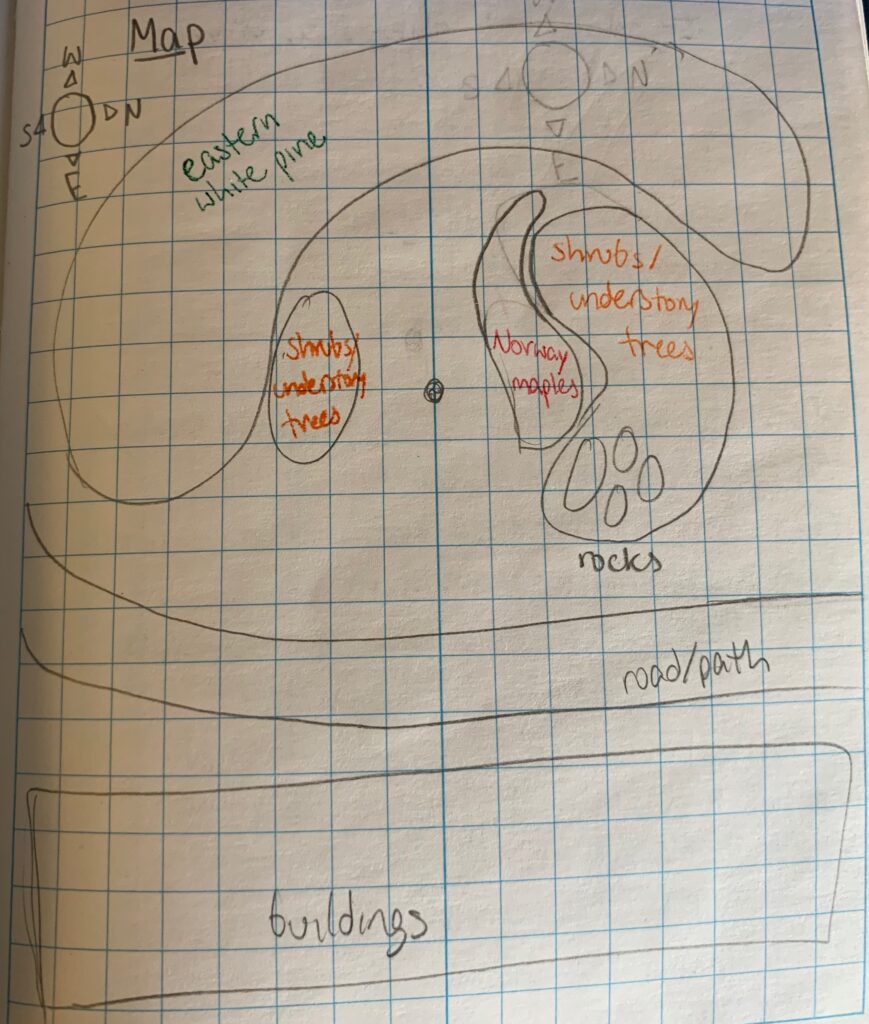 Map
W
S N
E
W
S N
E
eastern
white pine
shrubs/
understory
trees
shrubs/
understory
trees
Norway
maples
rocks
road/path
buildings